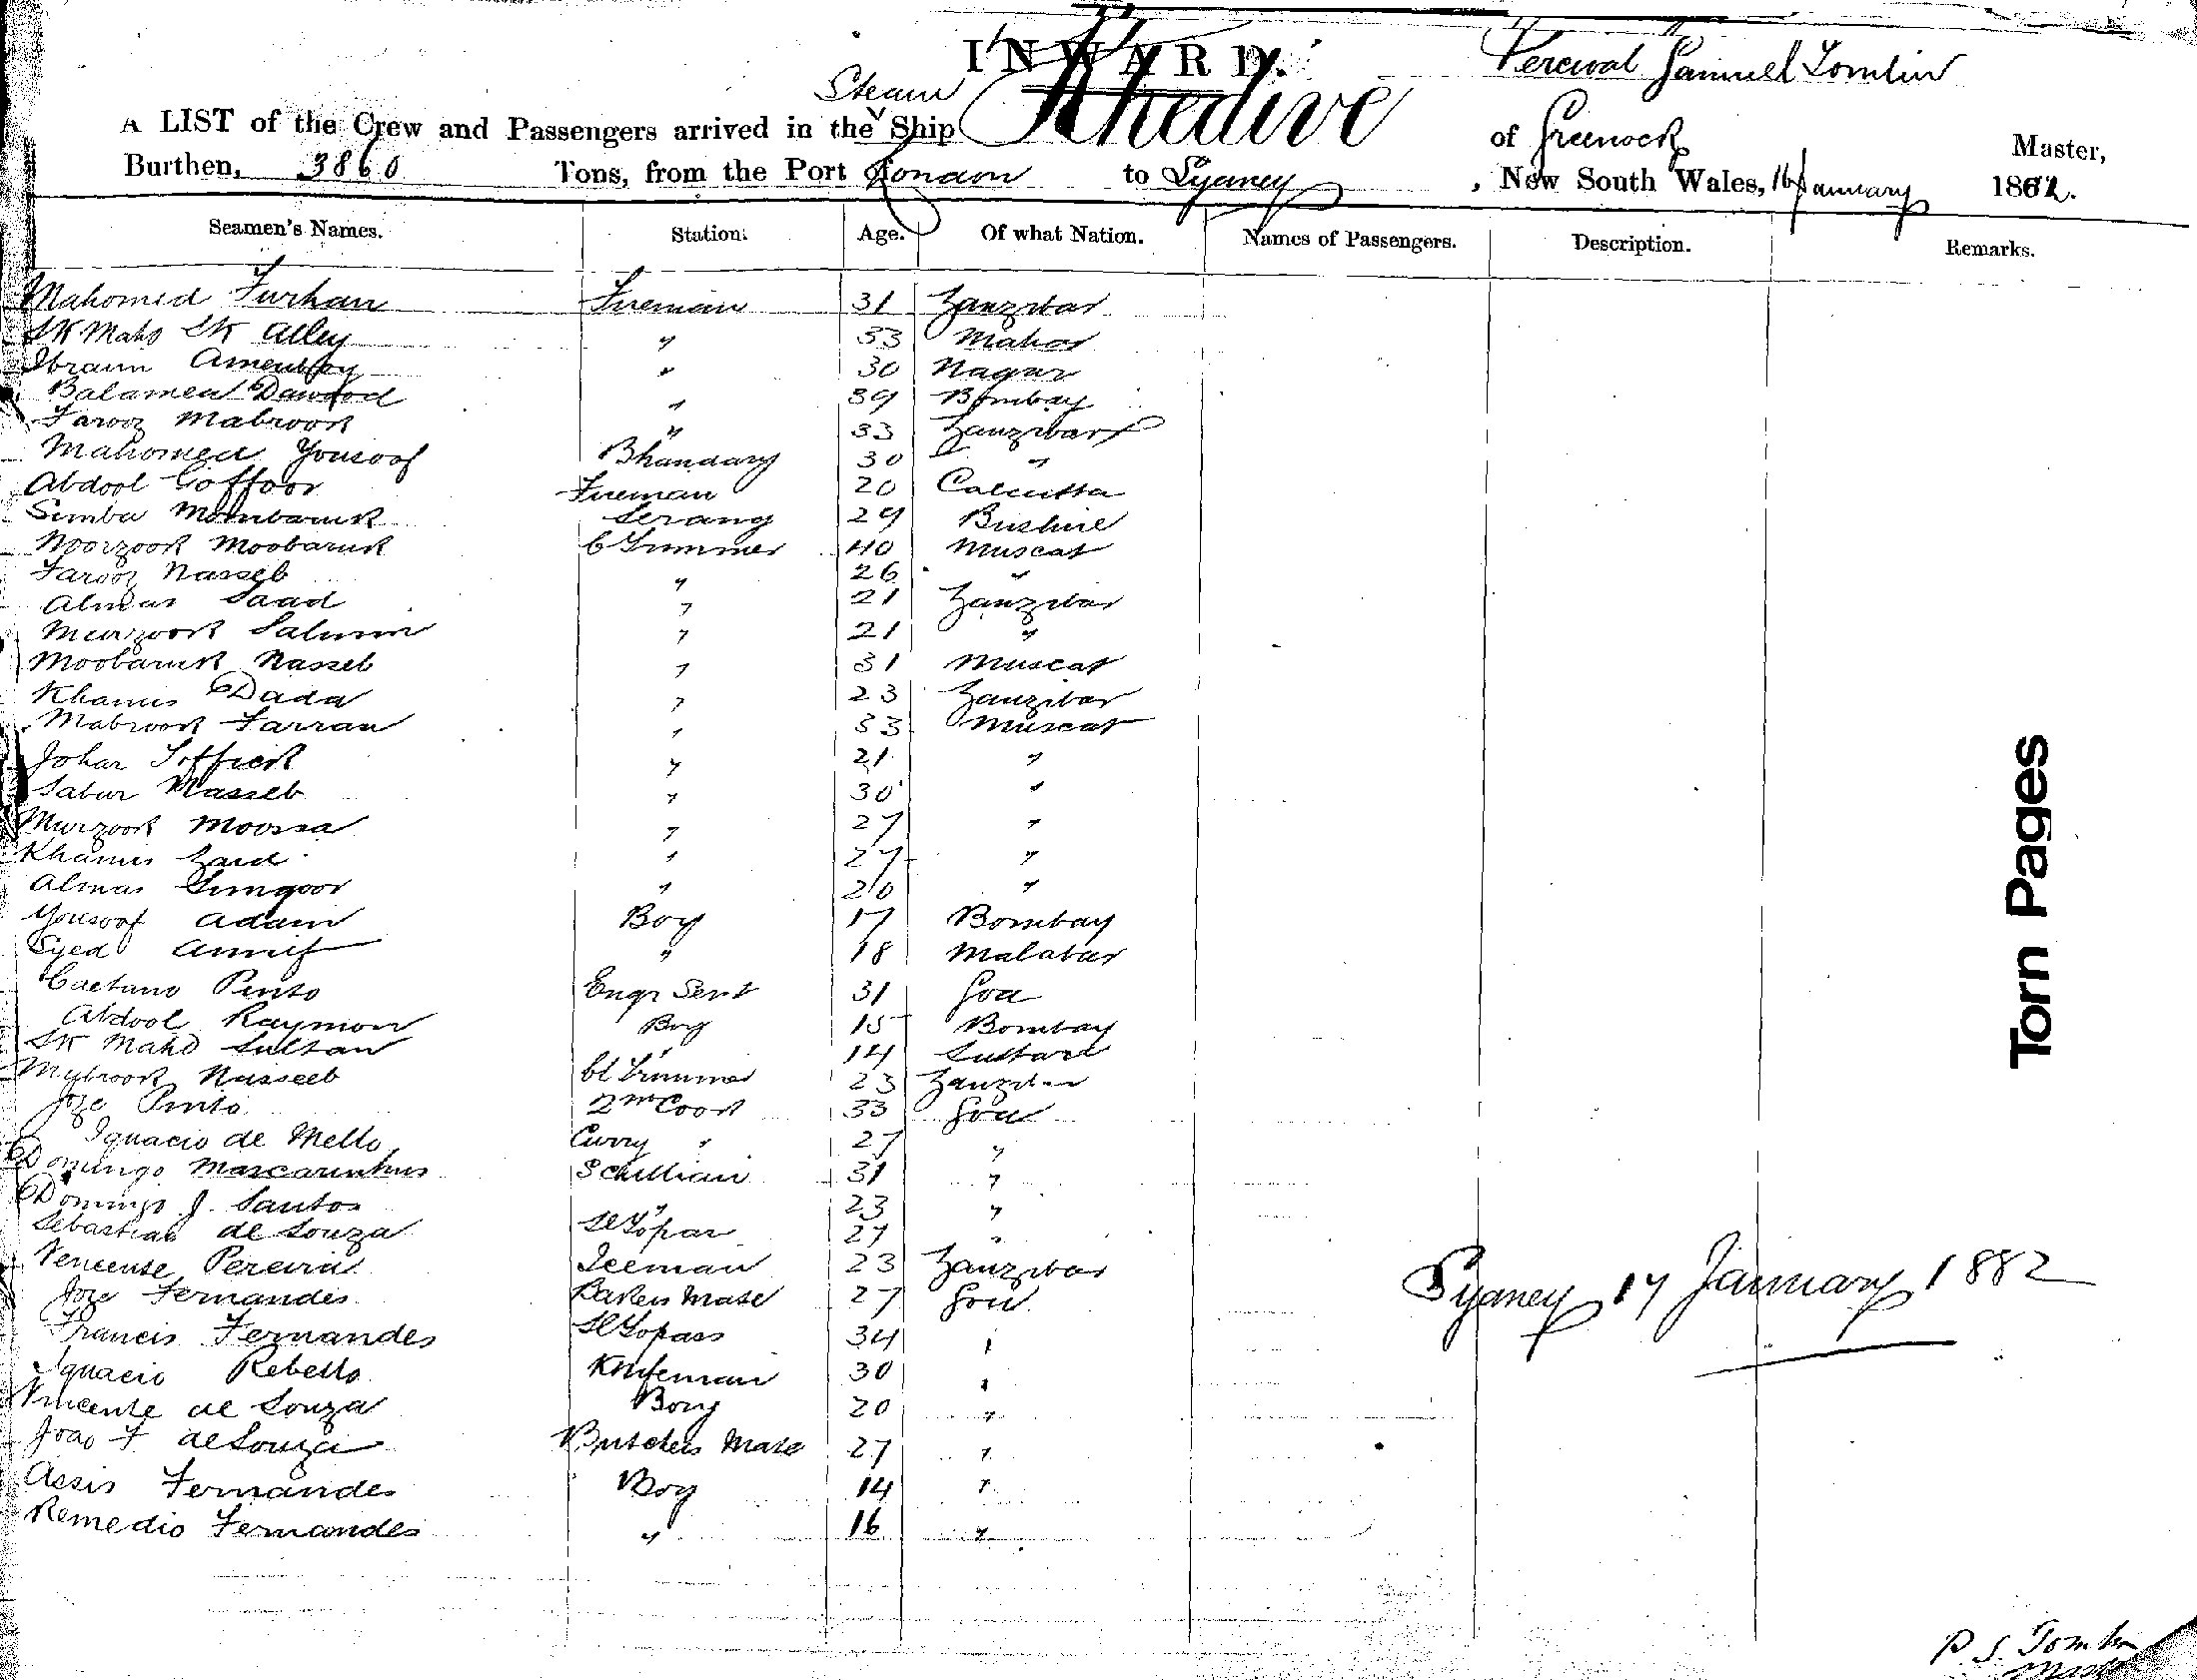 INWARD.
Steam
Khedive
Percival Samuel Tomlin
A LIST of the Crew and Passengers arrived in the Ship
of Greenock
Master,
Burthen, 3860 Tons, from the Port London to Sydney, New South Wales, 16 January 1882.
Seamen's Names. Station. Age. Of what Nation. Names of Passengers. Description. Remarks.
Mahomed Furhan Fireman 31 Zanzibar
SK Maho SK Alley " 33
Amenbhoy " 30 Nagur
Dawood " 39 Bombay
Farooz Mabrook " 33 Zanzibar
Mahomed Yousoof Bhandary 30 "
Abdool Goffoor Fireman 20 Calcutta
Simba Mombaruk Serang 29 Bushire
Noorzook Moobaruk C Trimmer 40 Muscat
Farooz Nasseb " 26 "
Almas Saad " 21 Zanzibar
Murzook Salmin " 21 "
Moobaruk Nasseb " 31 Muscat
Khamis Dada " 23 Zanzibar
Mabrook Farran " 33 Muscat
Johar " 21 "
Sabur Nasseb " 30 "
Murzook Moossa " 27 "
Khamis Zaid " 27 "
Almas " 20 "
Yousoof Adam Boy 17 Bombay
Syed " 18 Malabar
Caetano Pinto Engr Servt 31 Goa
Abdool Raymon Boy 15 Bombay
SK Maho Sultan " 14
Mybrook Nusseeb Cl Trimmer 23 Zanzibar
Joze Pinto 2nd Cook 33 Goa
Ignacio de Mello Curry " 27 "
Domingo Mascarinhus Scullian 31 "
Domingo J. Santos " 23 "
Sebastian de Souza Topas 27 "
Vencente Pereira Iceman 23 Zanzibar
Joze Fernandes Bakers Mate 27 Goa
Francis Fernandes Topass 34 "
Ignacio Rebello Knifeman 30 "
Vincente de Souza Boy 20 "
Joao F de Souza Butchers Mate 27 "
Assis Fernandes Boy 14 "
Remedio Fernandes " 16 "
Torn Pages
Sydney 17 January 1882
P. S. Tomlin
Master